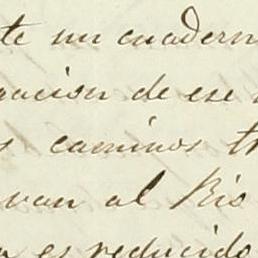 te un cuadern
gacion de ese
s caminos tr
van al Rio
a es reducido